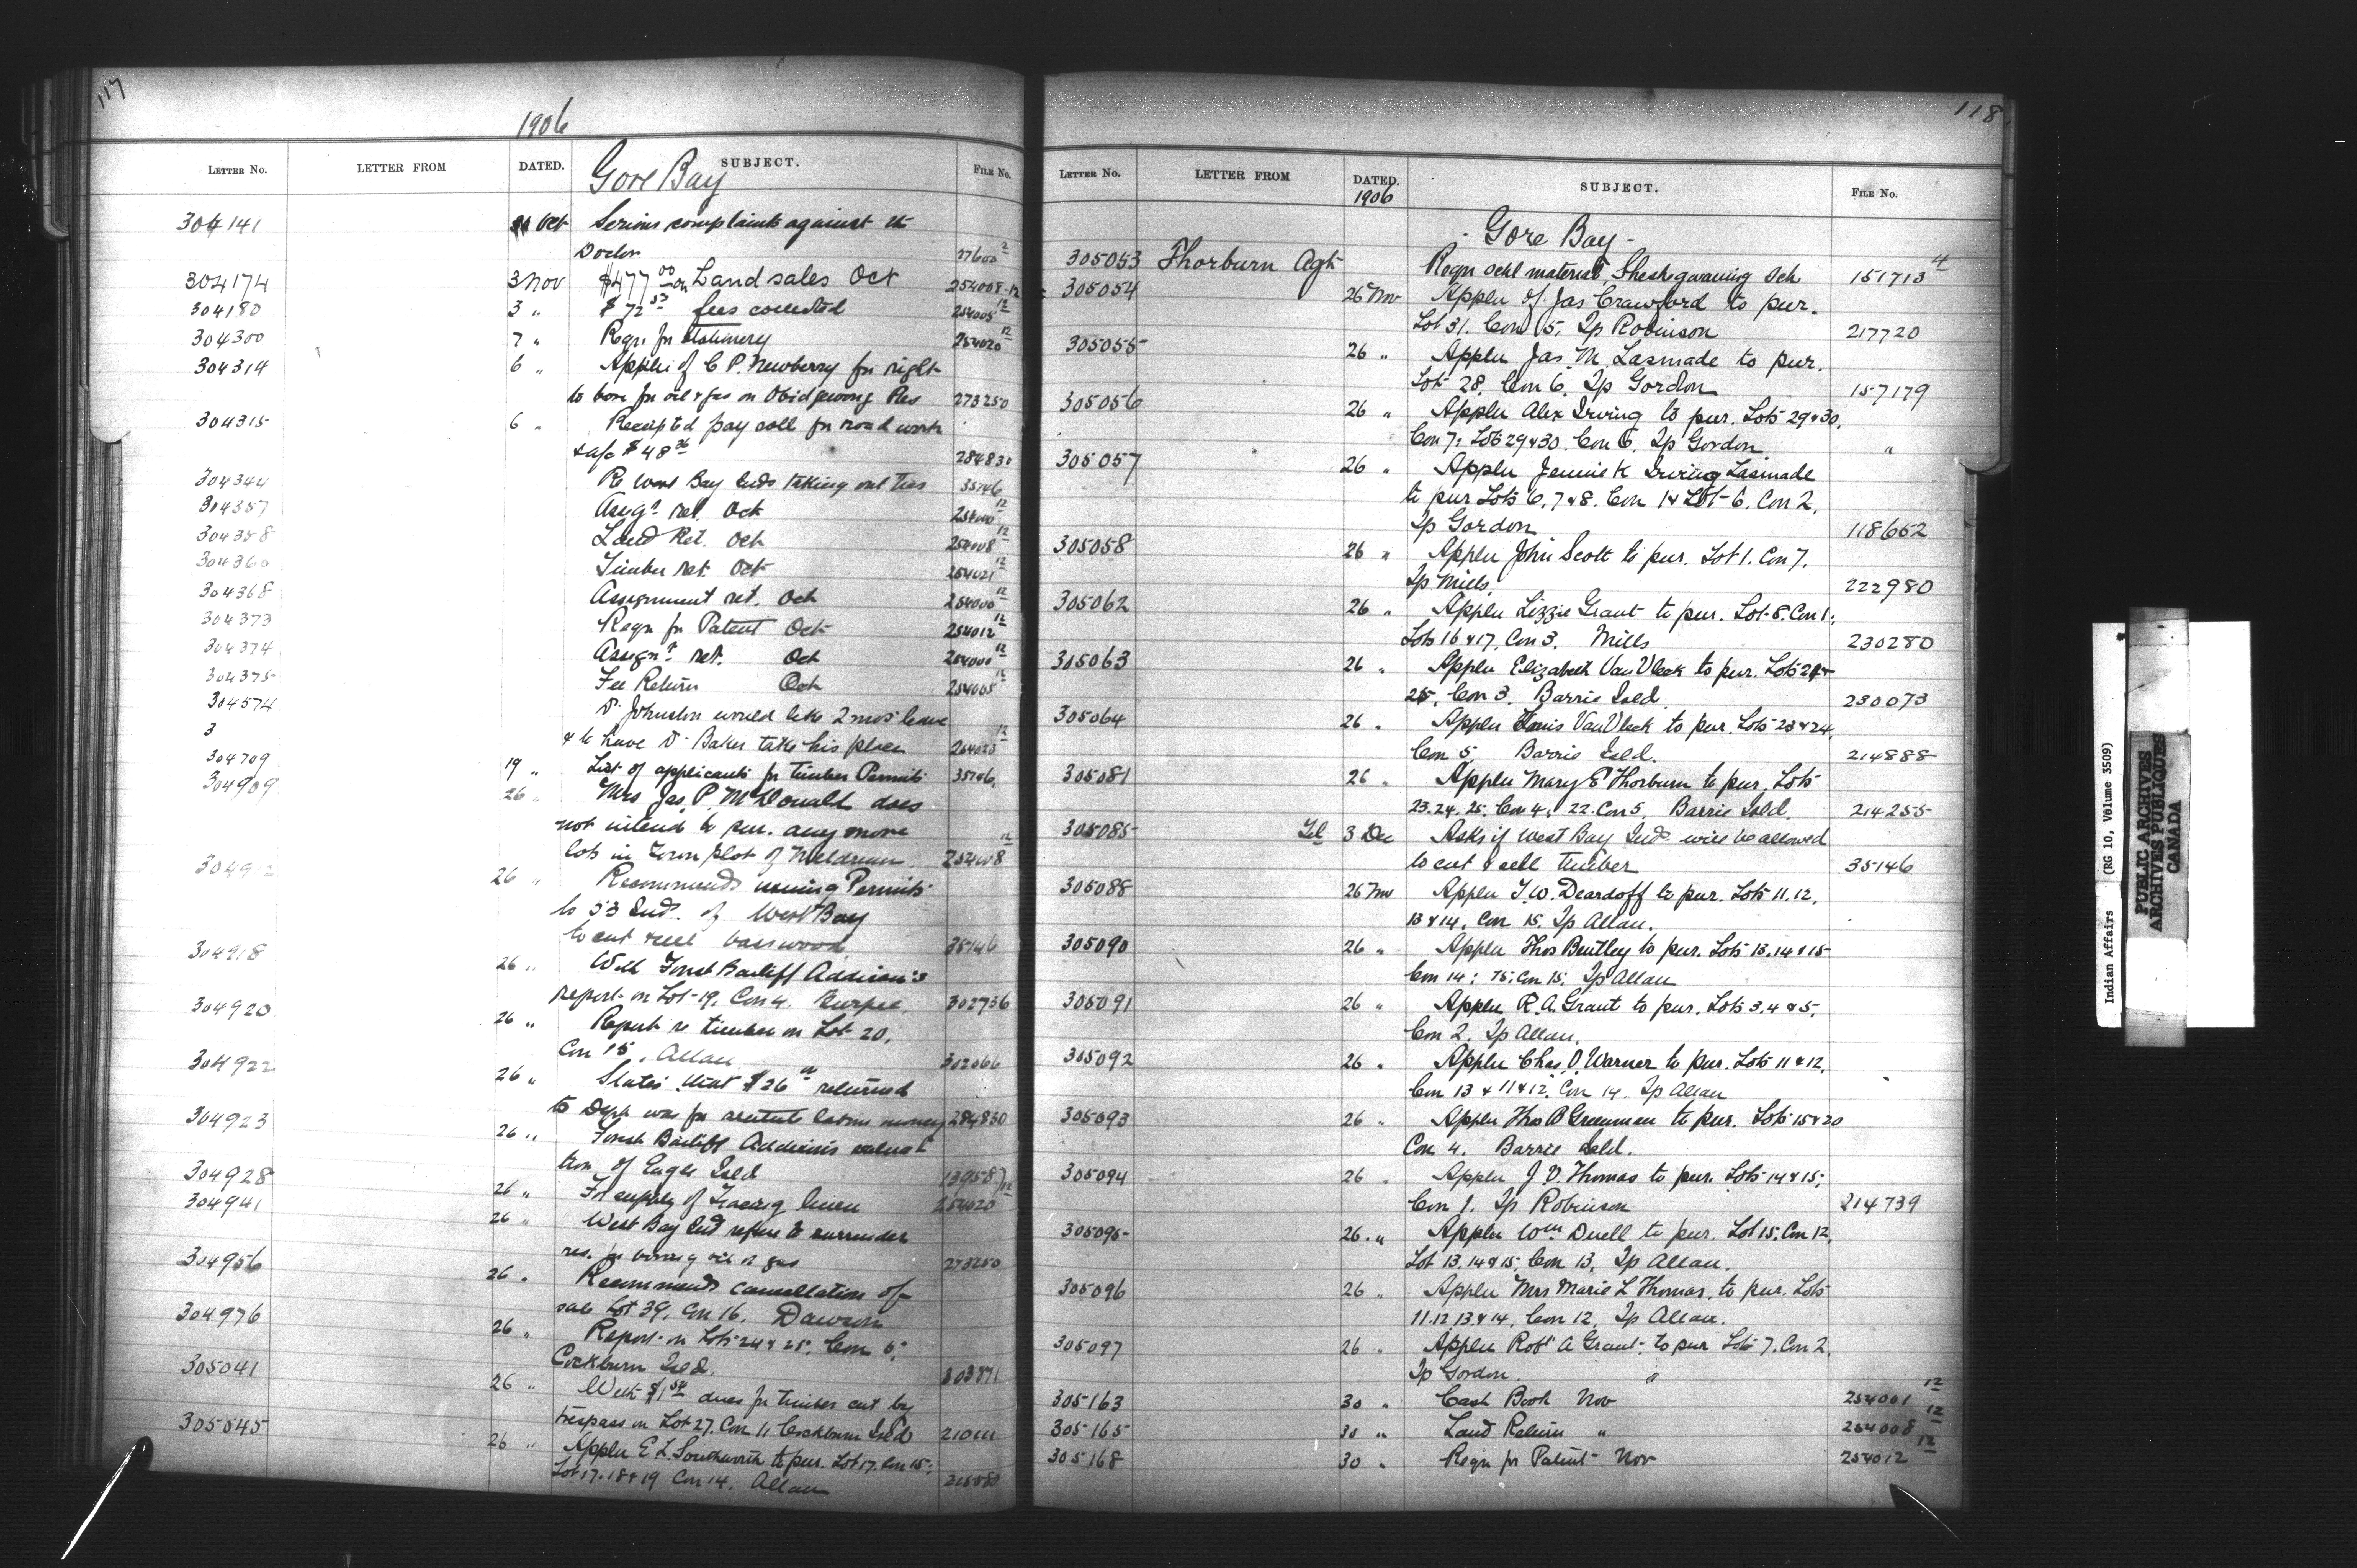 117
1906
LETTER No. LETTER FROM DATED. SUBJECT. FILE No.
Gore Bay
304141 31 Oct Serious complaints against the
Doctor 27600²
304174 3 Nov $477 00 on Land sales Oct 254008-12
304180 3 " $72 53 fees collected 254005 12
304300 7 " Reqn for stationery 254020 12
304314 6 " Appln of C P. Newberry for right
to bore for oil & gas on Obidgewong Res 273250
304315 6 " Receipted pay roll for road work
& a/c $48 36 284830
304344 Re West Bay Inds taking out ties 35146
304357 Assignt ret. Oct 254000 12
304358 Land Ret. Oct 254008 12
304360 Timber ret. Oct 254021 12
304368 Assignment ret. Oct 254000 12
304373 Reqn for Patent Oct 254012 12
304374 Assignt ret. Oct 254000 12
304375 Fee Return Oct 254005 12
304574 Dr Johnston would like 2 mos leave
3 & to have Dr Baker take his place 254023 12
304709 19 " List of applicants for timber Permits 35146
304909 26 " Mrs Jas. P. McDonald does
not intend to pur. any more
lots in Town plot of Meldrum. 254008 12
304912 26 " Recommends issuing Permits
to 53 Inds. of West Bay
to cut & sell basswood 35146
304918 26 " With Forest Bailiff Addison's
report on Lot 19. Con 4. Burpee. 302736
304920 26 " Report re timber on Lot 20,
Con 15, Allan 302066
304922 26 " States that $26 returned
to Dept was for statute labour money 284830
304923 26 " Forest Bailiff Addison's valua
tion of Eagle Isld 139587
304928 26 " For supply of Tracing linen 254020 12
304941 26 " West Bay Ind refuse to surrender
res. for boring oil or gas 273250
304956 26 " Recommends cancellation of
sale Lot 39, Con 16. Dawson
304976 26 " Report on Lots 24 & 25, Con 5;
Cockburn Isld. 303871
305041 26 " With $1 50 dues for timber cut by
trespass on Lot 27. Con 11 Cockburn Isld 210111
305045 26 " Appln E L. Southworth to pur. Lot 17. Con 15;
Lot 17. 18 & 19 Con 14. Allan 215580
118
LETTER No. LETTER FROM DATED. SUBJECT. FILE No.
1906
- Gore Bay -
305053 Thorburn Agt Reqn schl material, Sheshegwaning Sch 151713 4
305054 26 Nov Appln of Jas Crawford to pur.
Lot 31. Con 15, Tp Robinson 217720
305055 26 " Appln Jas. M. Lasmade to pur.
Lot 28. Con 6. Tp Gordon 157179
305056 26 " Appln Alex Irving to pur. Lots 29 & 30,
Con 7; Lots 29 & 30. Con 6, Tp Gordon "
305057 26 " Appln Jennie K Irving Lasmade
to pur Lots 6, 7 & 8. Con 1 & Lot 6. Con 2,
Tp Gordon 118652
305058 26 " Appln John Scott to pur. Lot 1. Con 7.
Tp Mills. 222980
305062 26 " Appln Lizzie Grant to pur. Lot 8. Con 1;
Lots 16 & 17, Con 3. Mills 230280
305063 26 " Appln Elizabeth Van Vleck to pur. Lots 24 &
25, Con 3. Barrie Isld 230073
305064 26 " Appln Van Vleck to pur. Lots 23 & 24,
Con 5; Barrie Isld. 214888
305081 26 " Appln Mary E Thorburn to pur. Lots
23. 24. 25. Con 4; 22. Con 5, Barrie Isld. 214255
305085 Tel 3 Dec Asks if West Bay Inds will be allowed
to cut & sell timber 35146
305088 26 Nov Appln T. W. Deardoff to pur. Lots 11. 12,
13 & 14, Con 15, Tp Allan.
305090 26 " Appln Thos Bentley to pur. Lots 13. 14 & 15
Con 14; 15; Con 15; Tp Allan
305091 26 " Appln R. A. Grant to pur. Lots 3. 4 & 5,
Con 2. Tp Allan.
305092 26 " Appln Chas. O. Warner to pur. Lots 11 & 12,
Con 13 & 11 & 12, Con 14, Tp Allan
305093 26 " Appln Thos B Greenman to pur. Lots 15 & 20
Con 4. Barrie Isld.
305094 26 " Appln J. D. Thomas to pur. Lots 14 & 15;
Con 1. Tp Robinson 214739
305095 26 " Appln Wm Duell to pur. Lot 15. Con 12,
Lot 13. 14 & 15; Con 13, Tp Allan.
305096 26 " Appln Mrs Marie L Thomas, to pur. Lots
11. 12 13. & 14, Con 12, Tp Allan.
305097 26 " Appln Robt A Grant, to pur Lot 7. Con 2,
Tp Gordon.
305163 30 " Cash Book Nov 254001 12
305165 30 " Land Return " 254008 12
305168 30 " Reqn for Patent Nov 254012 12
Indian Affairs (RG 10, Volume 3509)
PUBLIC ARCHIVES
ARCHIVES PUBLIQUES
CANADA